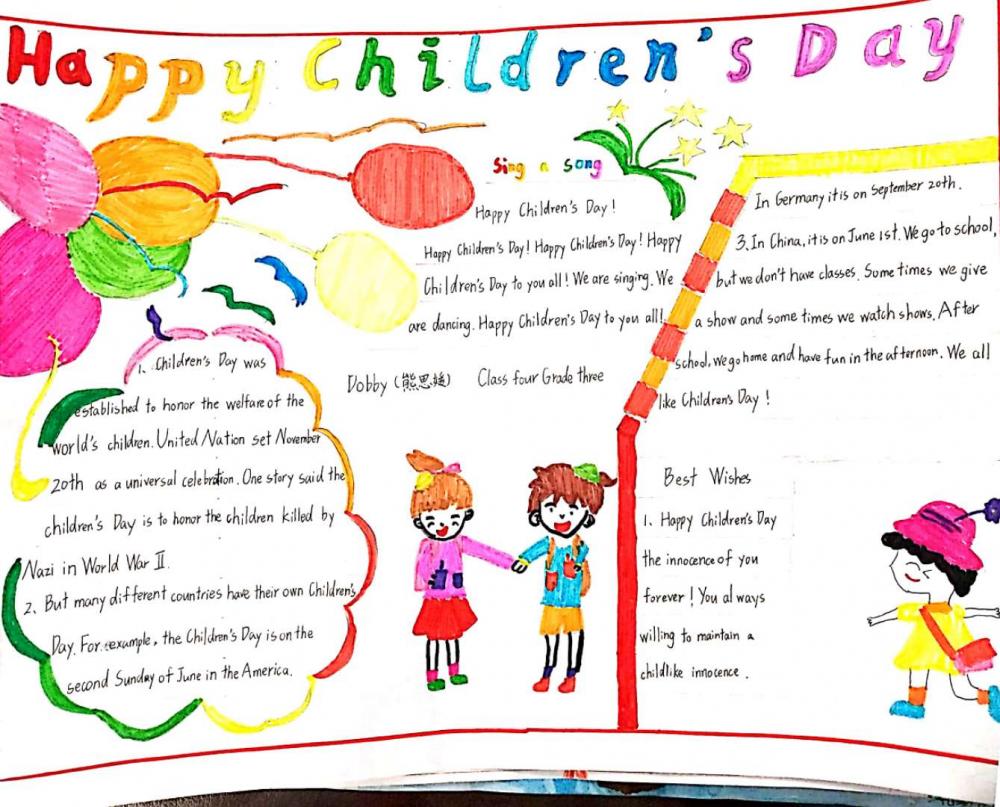 Happy Children's Day
Sing a song
Happy Children's Day!
Happy Children's Day! Happy Children's Day! Happy
Children's Day to you all! We are singing. We
are dancing. Happy Children's Day to you all!
Dobby (熊思媛) Class four Grade three
1. Children's Day was
established to honor the welfare of the
world's children. United Nation set November
20th as a universal celebration. One story said the
children's Day is to honor the children killed by
Nazi in World War II.
2. But many different countries have their own Children's
Day. For example, the Children's Day is on the
second Sunday of June in the America.
In Germany it is on September 20th.
3. In China, it is on June 1st. We go to school,
but we don't have classes. Some times we give
a show and some times we watch shows. After
school, we go home and have fun in the afternoon. We all
like Children's Day!
Best Wishes
1. Happy Children's Day
the innocence of you
forever! You always
willing to maintain a
childlike innocence.